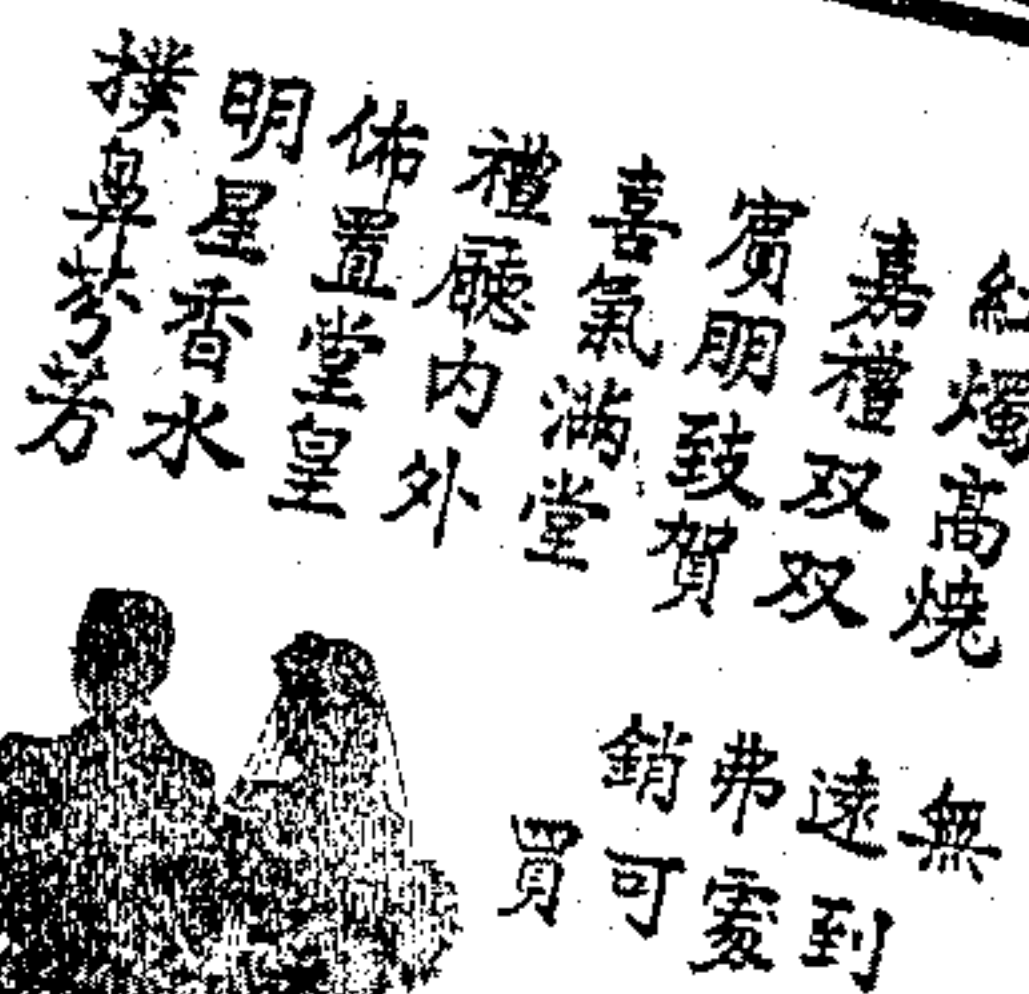 紅燭高燒
嘉禮双双
賓朋致賀
喜氣滿堂
禮廳内外
佈置堂皇
明星香水
撲鼻芬芳
無遠弗銷
到處可買